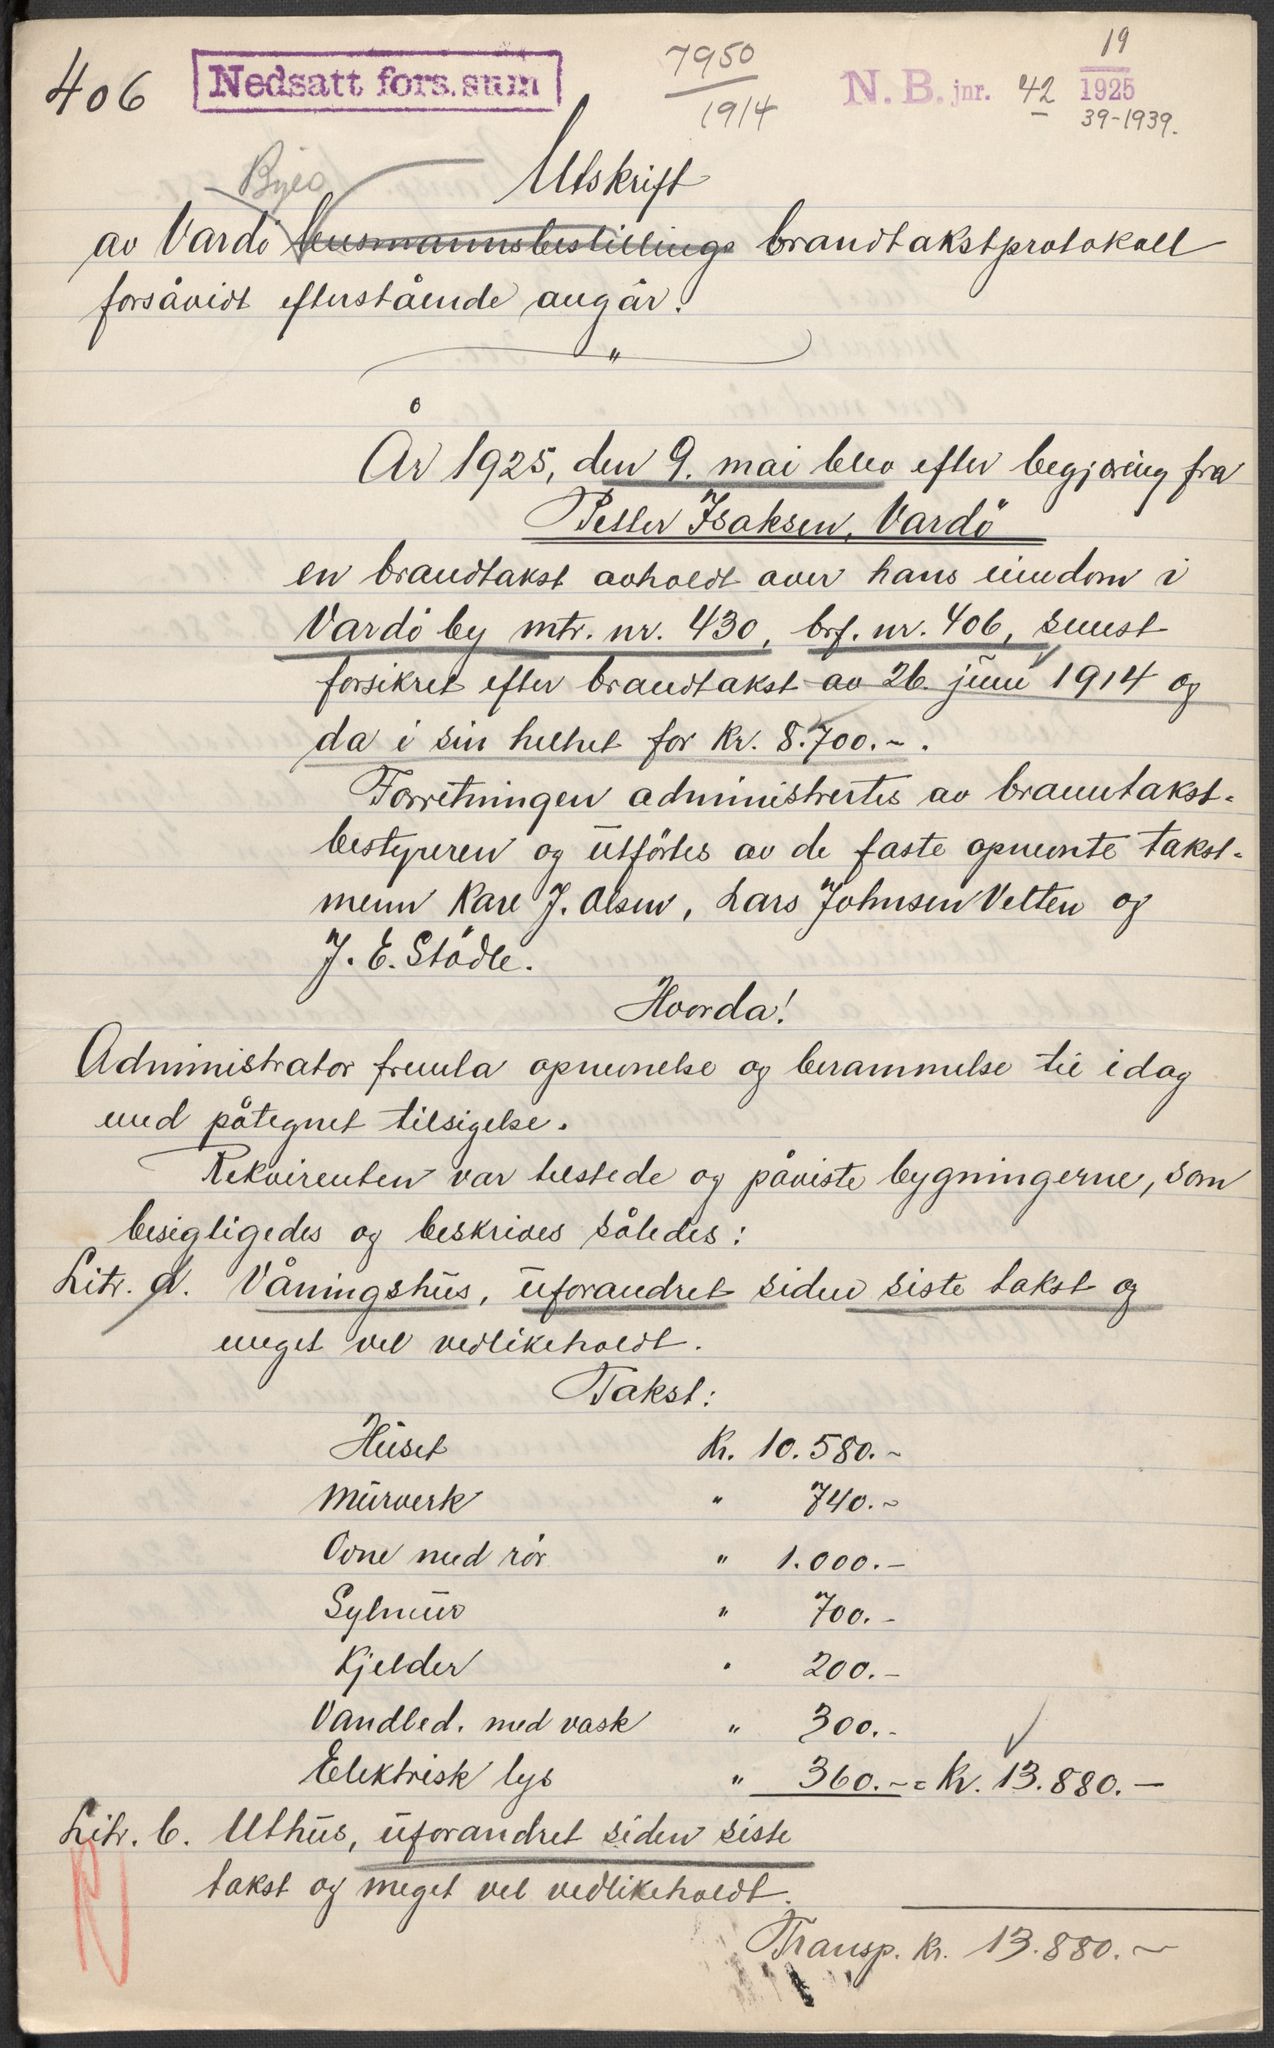 406
Nedsatt fors.sum
7950
1914
N. B. jnr. 42
19
1925
39-1939.
Byes
Utskrift
av Vardö husmannsbestillings brandtakstprotokoll
forsåvidt efterstående angår.
"
År 1925, den 9. mai blev efter begjæring fra
Petter Isaksen, Vardö
en brandtakst avholdt over hans eiendom i
Vardö by mtr. nr. 430, brf. nr. 406, senest
forsikret efter brandtakst av 26. juni 1914 og
da i sin helhet for Kr. 8.700.-.
Forretningen administrertes av branntakst-
bestyreren og utførtes av de faste opnevnte takst-
menn Karl J. Olsen, Lars Johnsen Velten og
J. E. Städle.
Hvorda!
Administrator fremla opnevnelse og berammelse til idag
med påtegnet tilsigelse.
Rekvirenten var tilstede og påviste bygningerne, som
besigtigedes og beskrives således:
Litr. a. Våningshus, uforandret siden siste takst og
meget vel vedlikeholdt.
Takst:
Huset Kr. 10.580.-
Murverk " 740.-
Ovne med rör " 1.000.-
Sylmur " 700.-
Kjelder " 200.-
Vandled. med vask " 300.-
Elektrisk lys " 360.- = Kr. 13.880.-
Litr. b. Uthus, uforandret siden siste
takst og meget vel vedlikeholdt.
Transp. Kr. 13.880.-